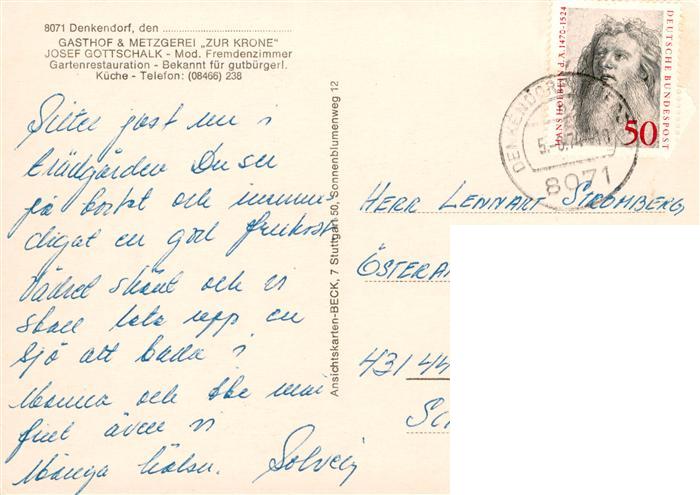 8071 Denkendorf, den
GASTHOF & METZGEREI „ZUR KRONE"
JOSEF GOTTSCHALK - Mod. Fremdenzimmer
Gartenrestauration - Bekannt für gutbürgerl.
Küche - Telefon: (08466) 238
Sitter just nu i
trädgården Du ser
på kortet och
en god frukost
Vädret skönt och vi
skall leta upp en
sjö att bada i
Mamma och mår
fint även vi
Många hälsn. Solveig
Ansichtskarten-BECK, 7 Stuttgart 50, Sonnenblumenweg 12
HANS HOLBEIN d. Ä. 1470-1524
DEUTSCHE BUNDESPOST
50
DENKENDORF
8071
HERR LENNART STROMBERG
ÖSTERÄ
431 44